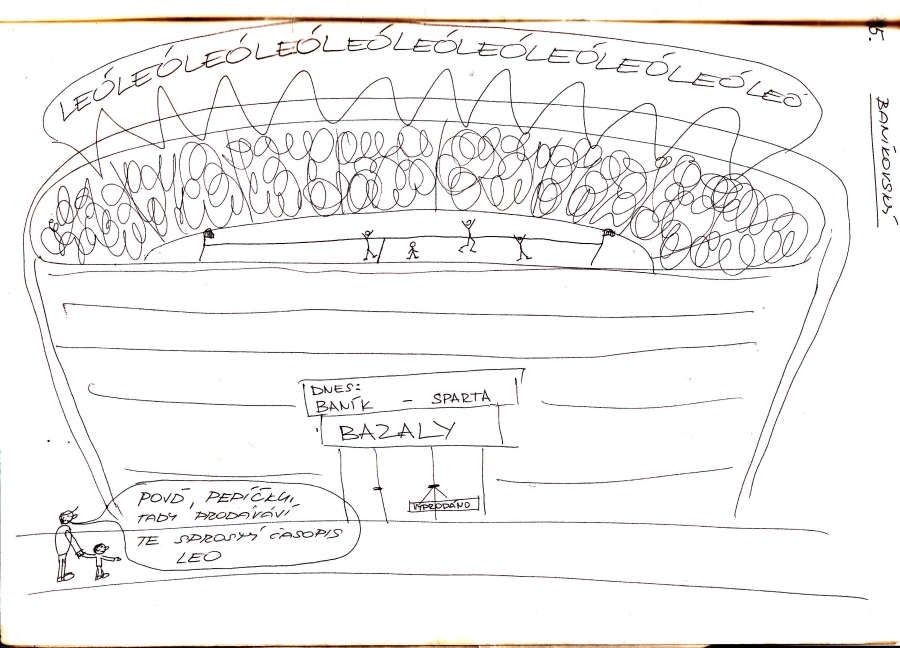 5.
BANÍKOVSKÝ
LEÓLEÓLEÓLEÓLEÓLEÓLEÓLEÓLEÓLEÓLEÓ
DNES:
BANÍK - SPARTA
BAZALY
VYPRODÁNO
POVĎ, PEPÍČKU,
TADY PRODÁVÁVÍ
TE SPROSTÝ ČASOPIS
LEO